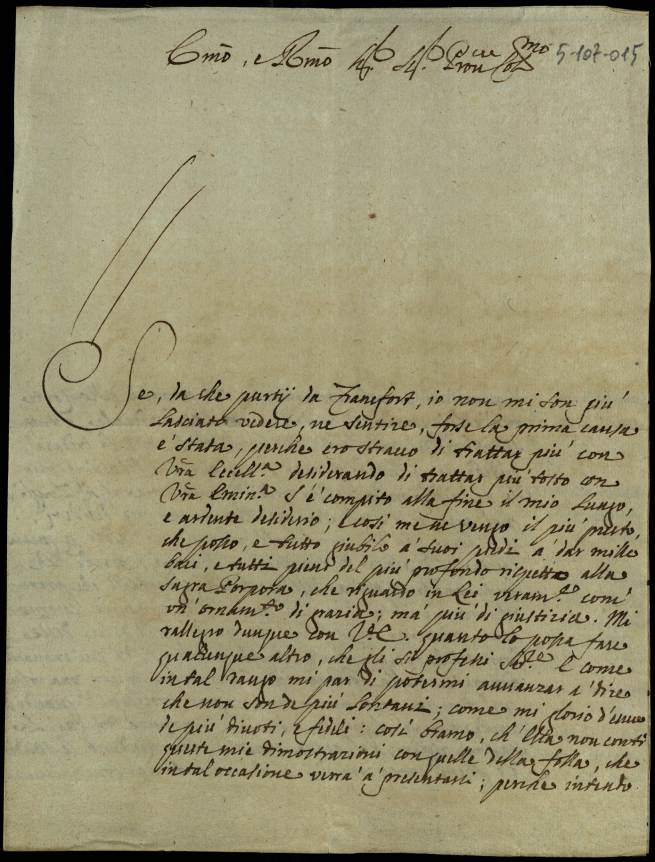 Emõ, e Rmõ Sig. Sig. Prõn Colmo 5-107-015
Se, da che partÿ da Francfort, io non mi son piú
lasciato vedere, ne sentire, forse la prima causa
é stata, perche ero stracco di trattar piú con
Vrã Eccell.ª desiderando di trattar piú tosto con
Vrã Emin.ª S'é compito alla fine il mio lungo,
e ardente desiderio; e cosi me ne vengo il piú presto,
che posso, e tutto giubilo á suoi piedi á dar mille
baci, e tutti pieni del piú profondo rispetto alla
Sagra Porpora, che riguardo in Lei veram.te com'
un'ornam.to di grazia; má piú di giustizia. Mi
rallegro dunque con V.E. quanto lo possa fare
qualunque altro, che gli si professi Ser.re E come
in tal rango mi par di potermi avvanzar á dire
che non son de piú lontani; come mi glorio d'essere
de piú divoti, e fidili: cosi bramo, ch'Ella non conti
queste mie dimostrazioni con quelle della folla, che
in tal occasione verrá á presentarsi; perche intendo